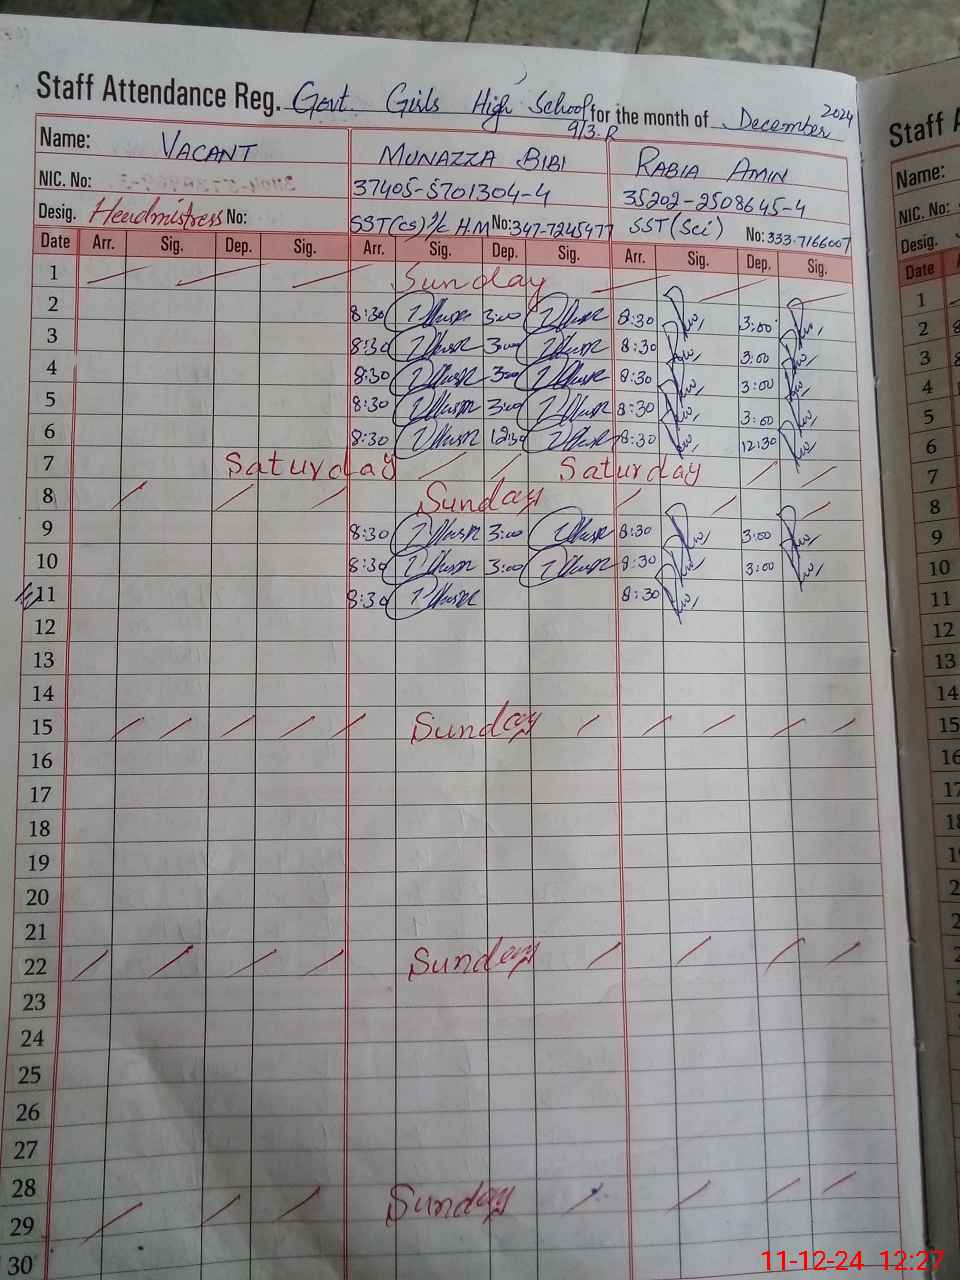 Staff Attendance Reg. Govt. Girls High School for the month of December 2024
9/3.R
Name: VACANT MUNAZZA BIBI RABIA AMIN
NIC. No: 37405-5701304-4 35202-2508645-4
Desig. Headmistress No: SST(CS) I/C H.M No: 347-7245477 SST(Sci) No: 333-7166007
Date Arr. Sig. Dep. Sig. Arr. Sig. Dep. Sig. Arr. Sig. Dep. Sig.
1 Sunday
2 8:30 3:00 8:30 3:00
3 8:30 3:00 8:30 3:00
4 8:30 3:00 8:30 3:00
5 8:30 3:00 8:30 3:00
6 8:30 12:30 8:30 12:30
7 Saturday Saturday
8 Sunday
9 8:30 3:00 8:30 3:00
10 8:30 3:00 8:30 3:00
11 8:30 8:30
12
13
14
15 Sunday
16
17
18
19
20
21
22 Sunday
23
24
25
26
27
28
29 Sunday
30
Staff A
Name:
NIC. No:
Desig.
Date
1
2
3
4
5
6
7
8
9
10
11
12
13
14
15
16
17
11-12-24 12:27